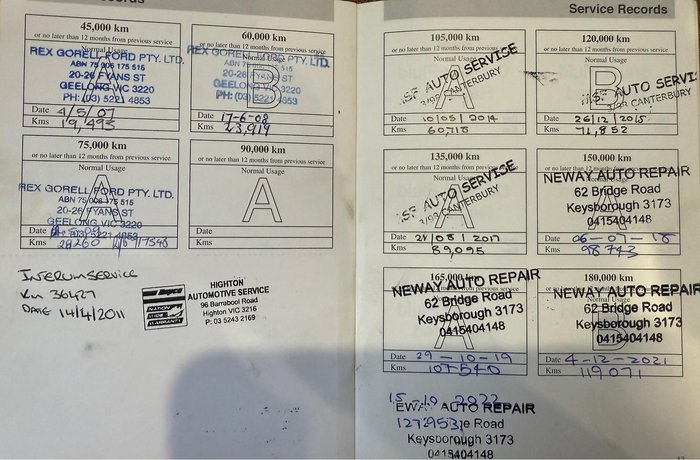 cords
45,000 km
or no later than 12 months from previous service
Normal Usage
REX GORELL FORD PTY. LTD.
ABN 75 006 175 515
20-26 FYANS ST
GEELONG VIC 3220
PH: (03) 5221 4853
A
Date 4/5/07
Kms 19,493
60,000 km
or no later than 12 months from previous service
Normal Usage
REX GORELL FORD PTY. LTD.
ABN 75 006 175 515
20-26 FYANS ST
GEELONG VIC 3220
PH: (03) 5221 4853
B
Date 17-6-08
Kms 23,919
75,000 km
or no later than 12 months from previous service
Normal Usage
REX GORELL FORD PTY. LTD.
ABN 75 006 175 515
20-26 FYANS ST
GEELONG VIC 3220
5221 4853
A
Date
Kms 29260
90,000 km
or no later than 12 months from previous service
Normal Usage
A
Date
Kms
INTERUM SERVICE
Km 36427
DATE 14/4/2011
NATION
WIDE
WARRANTY
HIGHTON
AUTOMOTIVE SERVICE
96 Barrabool Road
Highton VIC 3216
P: 03 5243 2169
Service Records
105,000 km
or no later than 12 months from previous service
Normal Usage
SF AUTO SERVICE
3/99 CANTERBURY
A
Date 10/05/2014
Kms 60,718
120,000 km
or no later than 12 months from previous service
Normal Usage
SF AUTO SERVICE
3/99 CANTERBURY
B
Date 26/12/2015
Kms 72,852
135,000 km
or no later than 12 months from previous service
Normal Usage
SF AUTO SERVICE
3/99 CANTERBURY
A
Date 21/08/2017
Kms 89,095
150,000 km
or no later than 12 months from previous service
NEWAY AUTO REPAIR
62 Bridge Road
Keysborough 3173
0415404148
Date 06-07-18
Kms 98743
165,000 km
NEWAY AUTO REPAIR
62 Bridge Road
Keysborough 3173
0415404148
A
Date 29-10-19
Kms 107540
180,000 km
NEWAY AUTO REPAIR
62 Bridge Road
Keysborough 3173
0415404148
B
Date 4-12-2021
Kms 119071
15-10-2022
EWAY AUTO REPAIR
127953
e Road
Keysborough 3173
0415404148